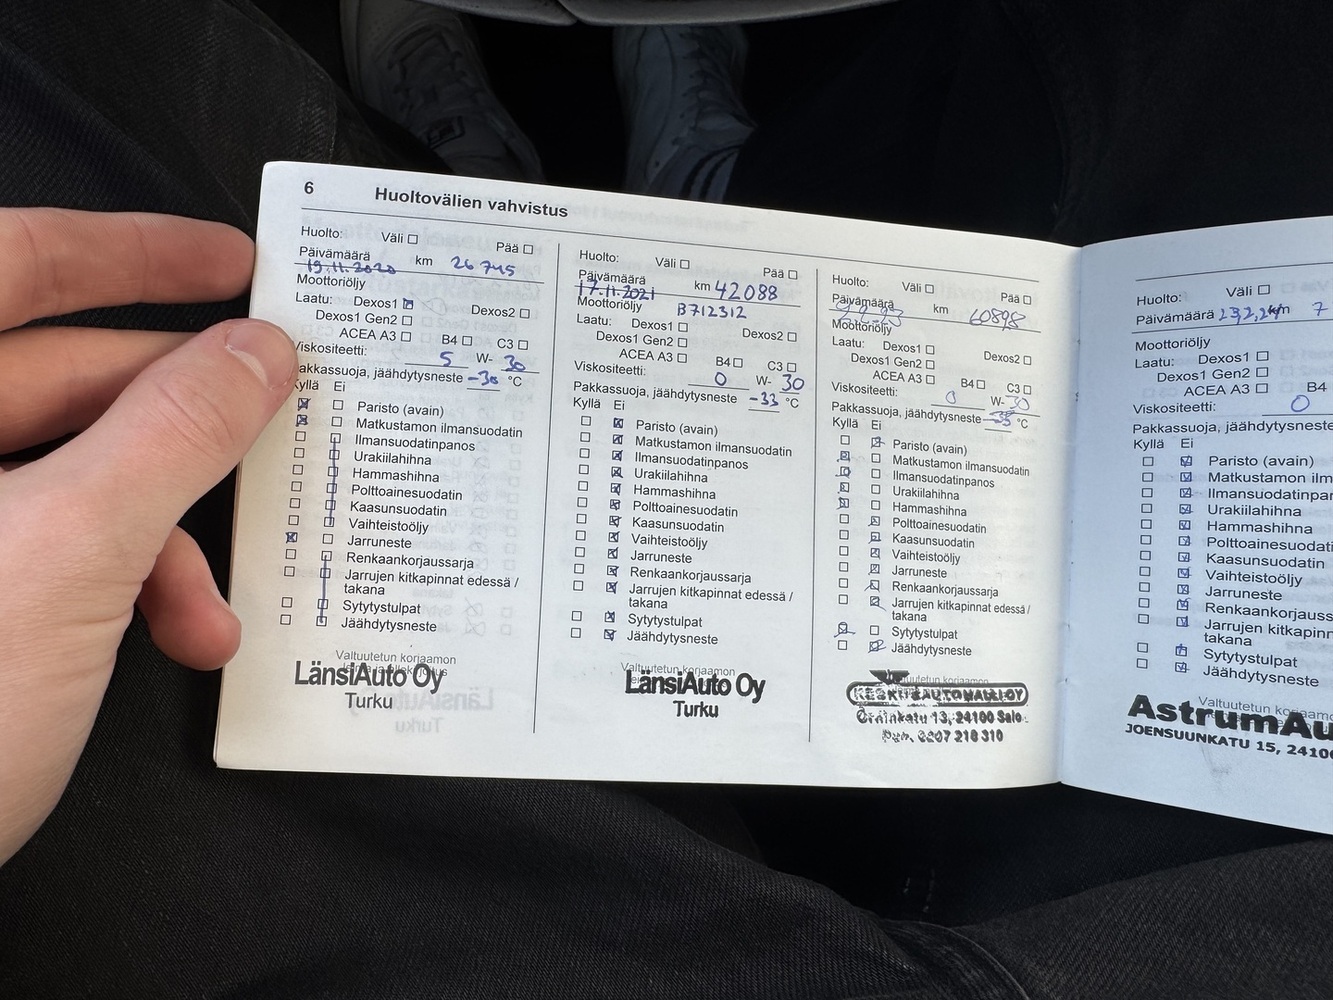 6 Huoltovälien vahvistus
Huolto: Väli Pää
Päivämäärä km 26 745
19.11.2020
Moottoriöljy
Laatu: Dexos1 Dexos2
Dexos1 Gen2
ACEA A3 B4 C3
Viskositeetti: 5 W- 30
Pakkassuoja, jäähdytysneste -30 °C
Kyllä Ei
Paristo (avain)
Matkustamon ilmansuodatin
Ilmansuodatinpanos
Urakiilahihna
Hammashihna
Polttoainesuodatin
Kaasunsuodatin
Vaihteistoöljy
Jarruneste
Renkaankorjaussarja
Jarrujen kitkapinnat edessä /
takana
Sytytystulpat
Jäähdytysneste
Valtuutetun korjaamon
LänsiAuto Oy
Turku
Huolto: Väli Pää
Päivämäärä km 42088
17.11.2021
Moottoriöljy B712312
Laatu: Dexos1 Dexos2
Dexos1 Gen2
ACEA A3 B4 C3
Viskositeetti: 0 W- 30
Pakkassuoja, jäähdytysneste -33 °C
Kyllä Ei
Paristo (avain)
Matkustamon ilmansuodatin
Ilmansuodatinpanos
Urakiilahihna
Hammashihna
Polttoainesuodatin
Kaasunsuodatin
Vaihteistoöljy
Jarruneste
Renkaankorjaussarja
Jarrujen kitkapinnat edessä /
takana
Sytytystulpat
Jäähdytysneste
Valtuutetun korjaamon
LänsiAuto Oy
Turku
Huolto: Väli Pää
Päivämäärä km 60898
Moottoriöljy
Laatu: Dexos1 Dexos2
Dexos1 Gen2
ACEA A3 B4 C3
Viskositeetti: 0 W- 30
Pakkassuoja, jäähdytysneste -35 °C
Kyllä Ei
Paristo (avain)
Matkustamon ilmansuodatin
Ilmansuodatinpanos
Urakiilahihna
Hammashihna
Polttoainesuodatin
Kaasunsuodatin
Vaihteistoöljy
Jarruneste
Renkaankorjaussarja
Jarrujen kitkapinnat edessä /
takana
Sytytystulpat
Jäähdytysneste
Valtuutetun korjaamon
13, 24100 Salo
Puh. 0207 218 310
Huolto: Väli
Päivämäärä 23.2.24 km 7
Moottoriöljy
Laatu: Dexos1
Dexos1 Gen2
ACEA A3 B4
Viskositeetti: 0
Pakkassuoja, jäähdytysneste
Kyllä Ei
Paristo (avain)
Matkustamon ilm
Ilmansuodatinpan
Urakiilahihna
Hammashihna
Polttoainesuodati
Kaasunsuodatin
Vaihteistoöljy
Jarruneste
Renkaankorjauss
Jarrujen kitkapinn
takana
Sytytystulpat
Jäähdytysneste
Valtuutetun korjaamo
AstrumAu
JOENSUUNKATU 15, 2410